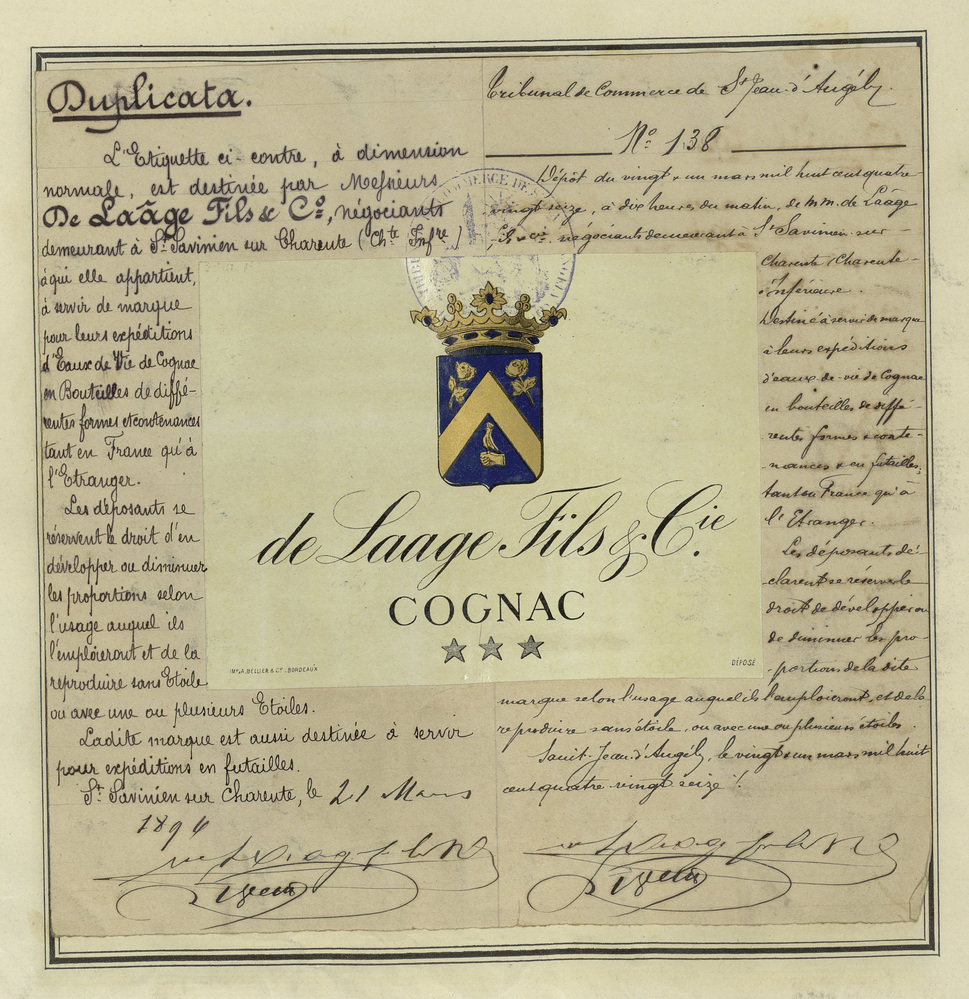 Duplicata.
L'Etiquette ci-contre, à dimension
normale, est destinée par Messieurs
De Laâge Fils & Co, négociants
demeurant à St Savinien sur Charente (Chte Infre)
à qui elle appartient,
à servir de marque
pour leurs expéditions
d'Eaux de Vie de Cognac
en Bouteilles de diffé-
rentes formes et contenances
tant en France qu'à
l'Etranger.
Les déposants se
réservent le droit d'en
développer ou diminuer
les proportions selon
l'usage auquel ils
l'emploieront et de la
reproduire sans Etoile
ou avec une ou plusieurs Etoiles.
Ladite marque est aussi destinée à servir
pour expéditions en futailles.
St Savinien sur Charente, le 21 Mars
1896
de Laage Fils & Cie.
COGNAC
IMP. A. BELLIER & Cie. BORDEAUX
DÉPOSÉ
Tribunal de Commerce de St Jean-d'Angély.
No 138
Dépôt du vingt & un mars mil huit cent quatre
vingt seize, à dix heures du matin, de MM. de Laâge
Fs & Cie négociants demeurant à St Savinien-sur-
Charente (Charente-
Inférieure.
Destiné à servir de marque
à leurs expéditions
d'eaux-de-vie de Cognac
en bouteilles de diffé-
rentes formes & conte-
nances & en futailles,
tant en France qu'à
l'Etranger.
Les déposants dé-
clarent se réserver le
droit de développer ou
de diminuer les pro-
portions de la dite
marque selon l'usage auquel ils l'emploieront, et de la
reproduire sans étoile, ou avec une ou plusieurs étoiles.
Saint-Jean-d'Angély, le vingt & un mars mil huit
cent quatre-vingt seize